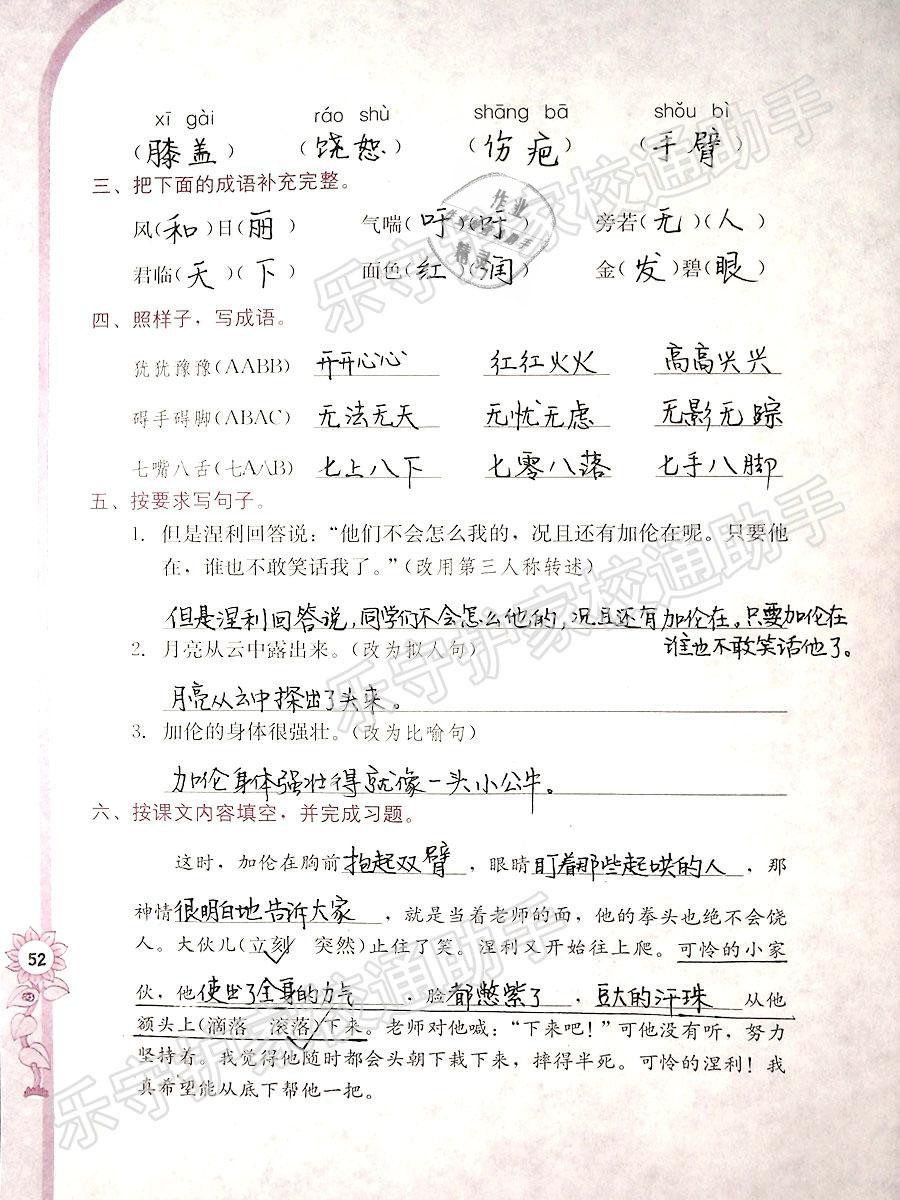 xī gài ráo shù shāng bā shǒu bì
（膝盖）（饶恕）（伤疤）（手臂）
三、把下面的成语补充完整。
风(和)日(丽) 气喘(吁)(吁) 旁若(无)(人)
君临(天)(下) 面色(红)(润) 金(发)碧(眼)
四、照样子，写成语。
犹犹豫豫(AABB) 开开心心 红红火火 高高兴兴
碍手碍脚(ABAC) 无法无天 无忧无虑 无影无踪
七嘴八舌(七A八B) 七上八下 七零八落 七手八脚
五、按要求写句子。
1. 但是涅利回答说：“他们不会怎么我的，况且还有加伦在呢。只要他
在，谁也不敢笑话我了。”（改用第三人称转述）
但是涅利回答说，同学们不会怎么他的，况且还有加伦在，只要加伦在
谁也不敢笑话他了。
2. 月亮从云中露出来。（改为拟人句）
月亮从云中探出了头来。
3. 加伦的身体很强壮。（改为比喻句）
加伦身体强壮得就像一头小公牛。
六、按课文内容填空，并完成习题。
这时，加伦在胸前抱起双臂，眼睛盯着那些起哄的人，那
神情很明白地告诉大家，就是当着老师的面，他的拳头也绝不会饶
人。大伙儿（立刻 突然）止住了笑。涅利又开始往上爬。可怜的小家
伙，他使出了全身的力气，脸都憋紫了，豆大的汗珠从他
额头上（滴落 滚落）下来。老师对他喊：“下来吧！”可他没有听，努力
坚持着。我觉得他随时都会头朝下栽下来，摔得半死。可怜的涅利！我
真希望能从底下帮他一把。
52
乐守护家校通助手
乐守护家校通助手
乐守护家校通助手
作业
精灵